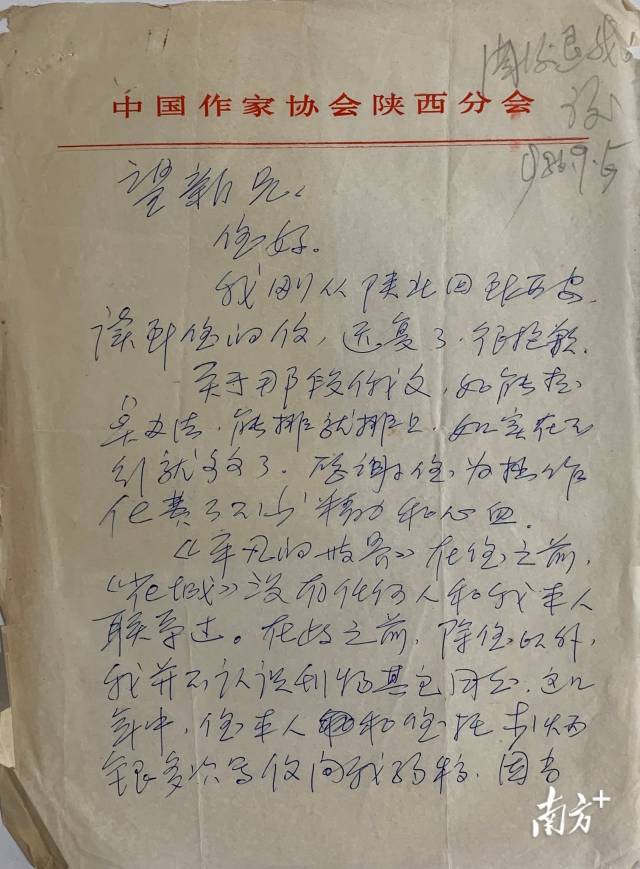 中国作家协会陕西分会
退我
1986.9.5
望新兄:
您好。
我刚从陕北回到西安,
读到您的信,迟复了.很抱歉.
关于那段俄文,如能想
办法.能排就排上.如实在不
行就算了.感谢您为拙作
化费了不少精力和心血.
《平凡的世界》在您之前,
《花城》没有任何人和我本人
联系过。在此之前,除您以外,
我并不认识刊物其它同志.这几
年中,您本人和您托李炳
银多次写信向我约稿.因当
南方+